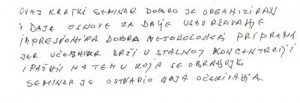 OVAJ KRATKI SEMINAR DOBRO JE ORGANIZIRAN
I DAJE OSNOVE ZA DALJE USAVRŠAVANJE
IMPRESIONIRA DOBRA METODOLOŠKA PRIPREMA
JER UČESNIKE DRŽI U STALNOJ KONCENTRACIJI
I PAŽNJI NA TEMU KOJA SE OBRAĐUJE
SEMINAR JE OSTVARIO MOJA OČEKIVANJA